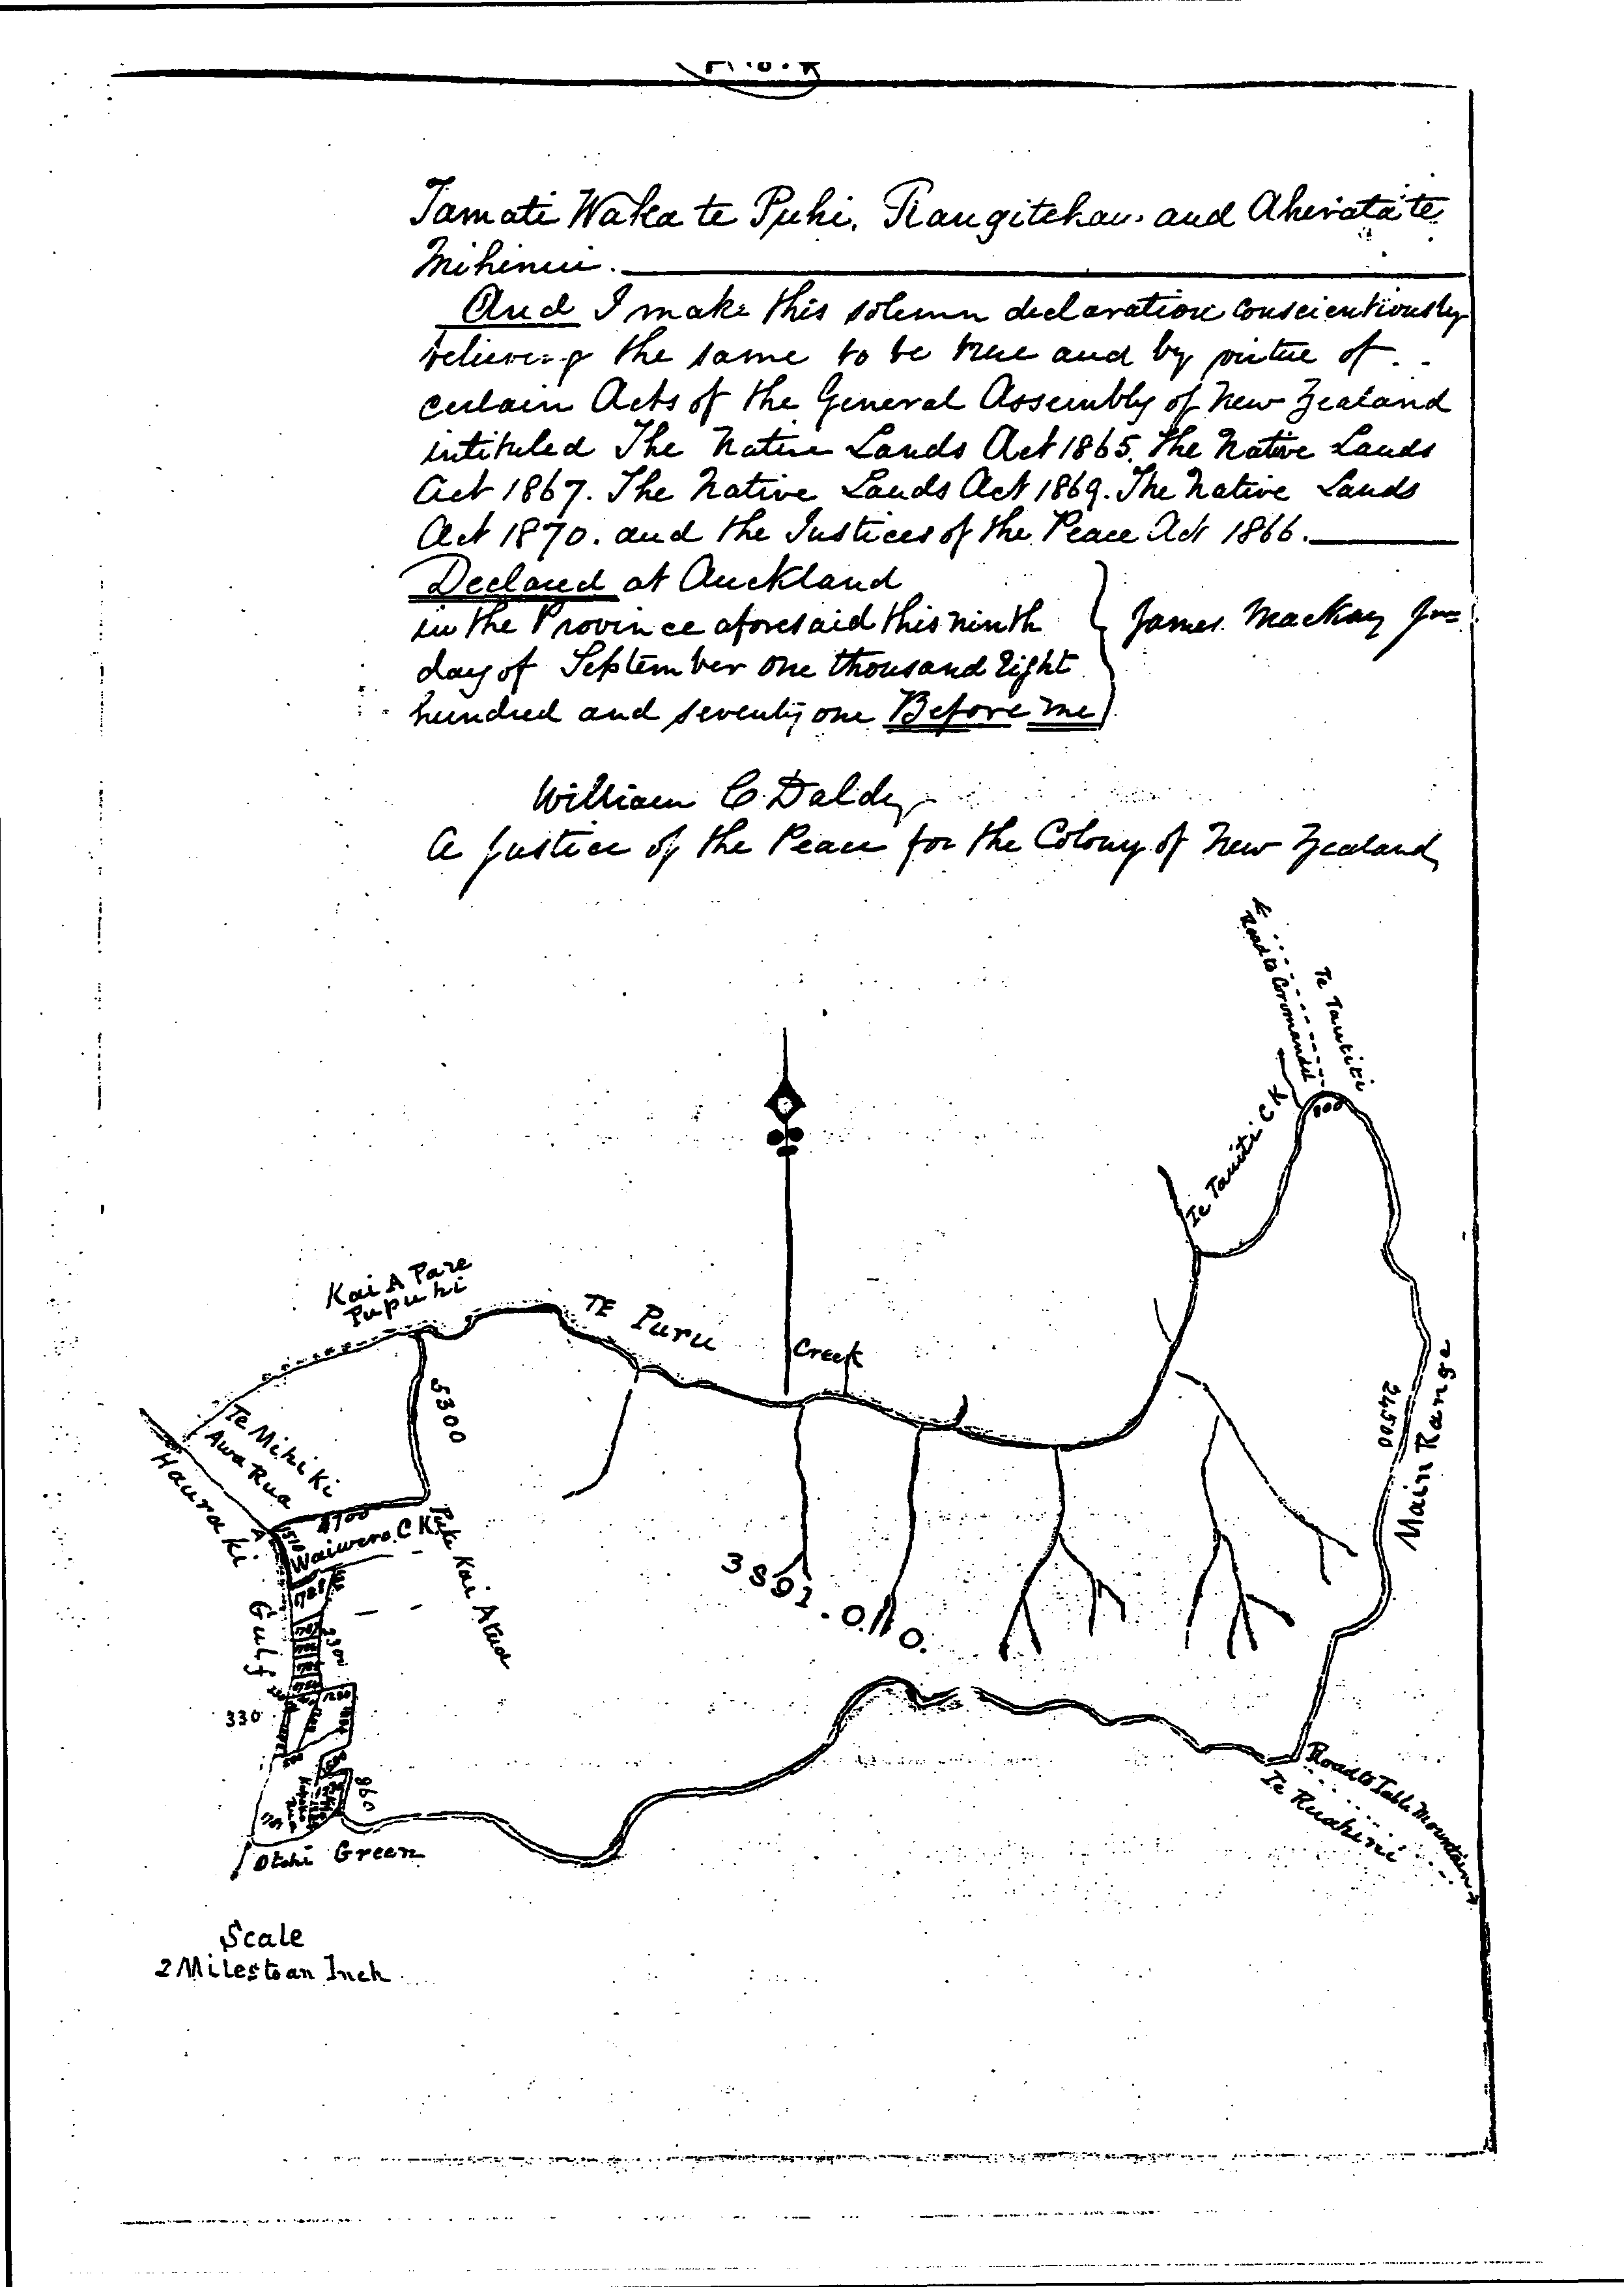 Tamati Waka te Puhi. Rangitehau. and Aherata te
Mihinui.
And I make this solemn declaration conscientiously
believing the same to be true and by virtue of
certain Acts of the General Assembly of New Zealand
intituled The Native Lands Act 1865. The Native Lands
Act 1867. The Native Lands Act 1869. The Native Lands
Act 1870. and the Justices of the Peace Act 1866.
Declared at Auckland
in the Province aforesaid this ninth
day of September one thousand eight
hundred and seventy one Before me
James Mackay Jnr
William C Daldy
A Justice of the Peace for the Colony of New Zealand
Road to Coromandel
Te Tautiti
Te Tautiti CK
Kai A Pare
Pupuhi
TE Puru Creek
5300
Te Mihi Ki
Awa Rua
Hauraki Gulf
A
4700
1510
Waiwera. C K
Puke Kai Atua
24500
Main Range
3891.0.0.
330
860
Road to Table Mountain
Te Ruahini
Otohi Green
Scale
2 Miles to an Inch